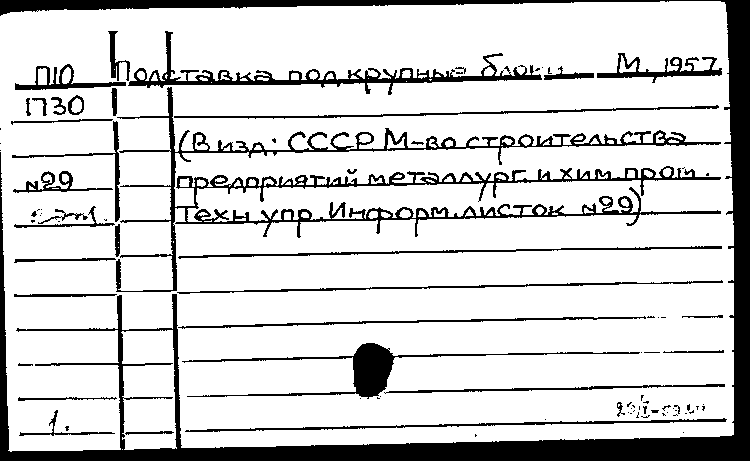 П10 Подставка под крупные блоки М., 1957
1730
(В изд: СССР М-во строительства
№29 предприятий металлург. и хим. пром.
Техн. упр. Информ. листок №29)
1.